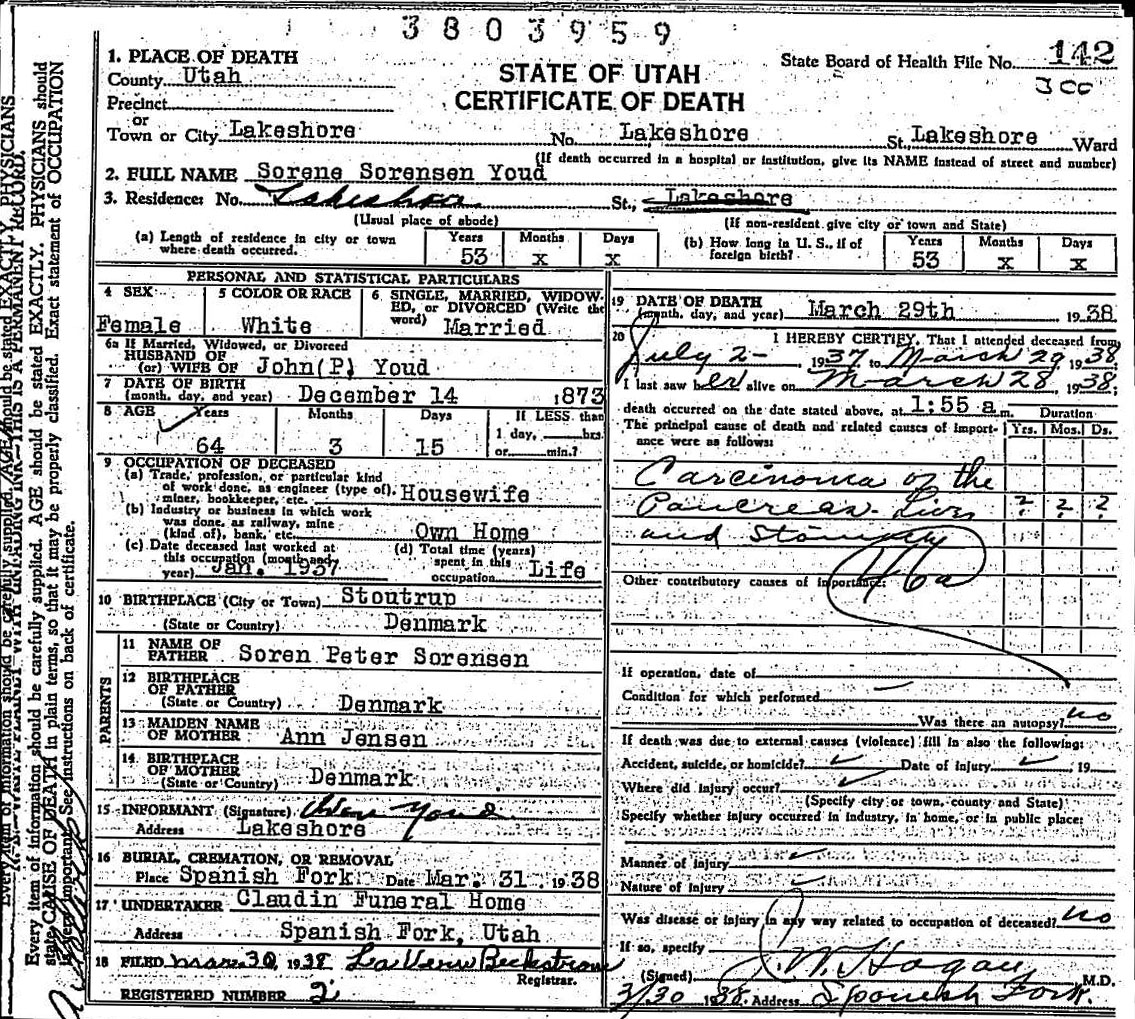 3803959
1. PLACE OF DEATH
County Utah
Precinct
or
Town or City Lakeshore No. Lakeshore St. Lakeshore Ward
STATE OF UTAH
CERTIFICATE OF DEATH
State Board of Health File No. 142
300
(If death occurred in a hospital or institution, give its NAME instead of street and number)
2. FULL NAME Sorene Sorensen Youd
3. Residence: No. Lakeshore St., Lakeshore
(Usual place of abode) (If non-resident give city or town and State)
(a) Length of residence in city or town where death occurred. Years 53 Months x Days x
(b) How long in U. S., if of foreign birth? Years 53 Months x Days x
PERSONAL AND STATISTICAL PARTICULARS
4 SEX Female
5 COLOR OR RACE White
6 SINGLE, MARRIED, WIDOWED, or DIVORCED (Write the word) Married
6a If Married, Widowed, or Divorced
HUSBAND OF
(or) WIFE OF John(P) Youd
7 DATE OF BIRTH
(month, day, and year) December 14 1873
8 AGE Years 64 Months 3 Days 15 If LESS than 1 day, hrs. or min.?
9 OCCUPATION OF DECEASED
(a) Trade, profession, or particular kind of work done, as engineer (type of), miner, bookkeeper, etc. Housewife
(b) Industry or business in which work was done, as railway, mine (kind of), bank, etc. Own Home
(c) Date deceased last worked at this occupation (month and year) Jan. 1937
(d) Total time (years) spent in this occupation Life
10 BIRTHPLACE (City or Town) Stoutrup
(State or Country) Denmark
PARENTS
11 NAME OF FATHER Soren Peter Sorensen
12 BIRTHPLACE OF FATHER
(State or Country) Denmark
13 MAIDEN NAME OF MOTHER Ann Jensen
14 BIRTHPLACE OF MOTHER
(State or Country) Denmark
15 INFORMANT (Signature) Owen Youd
Address Lakeshore
16 BURIAL, CREMATION, OR REMOVAL
Place Spanish Fork Date Mar. 31 1938
17 UNDERTAKER Claudin Funeral Home
Address Spanish Fork, Utah
18 FILED Mar. 30, 1938 LaVern Beckstrom
Registrar.
REGISTERED NUMBER 2
19 DATE OF DEATH
(month, day, and year) March 29th 1938
20 I HEREBY CERTIFY, That I attended deceased from
July 2- , 1937 to March 29, 1938
I last saw her alive on March 28 1938;
death occurred on the date stated above, at 1:55 a m. Duration
The principal cause of death and related causes of importance were as follows: Yrs. Mos. Ds.
Carcinoma of the
Pancreas-Liver ? ? ?
and Stomach
46a
Other contributory causes of importance:
If operation, date of
Condition for which performed
Was there an autopsy? no
If death was due to external causes (violence) fill in also the following:
Accident, suicide, or homicide? Date of injury , 19
Where did injury occur?
(Specify city or town, county and State)
Specify whether injury occurred in industry, in home, or in public place:
Manner of injury
Nature of injury
Was disease or injury in any way related to occupation of deceased? no
If so, specify
(Signed) J. W. Hagan M.D.
3/30 1938 Address Spanish Fork.
Every item of information should be carefully supplied. AGE should be stated EXACTLY. PHYSICIANS should
state CAUSE OF DEATH in plain terms, so that it may be properly classified. Exact statement of OCCUPATION
is very important. See instructions on back of certificate.